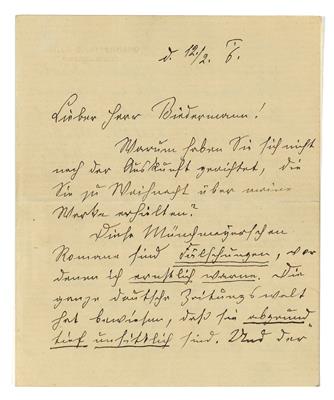 d. 12./2. 6.
Lieber Herr Biedermann!
Warum haben Sie sich nicht
nach der Auskunft gerichtet, die
Sie zu Weihnacht über meine
Werke erhielten?
Diese Münchmeyerschen
Romane sind Fälschungen, vor
denen ich ernstlich warne. Die
ganze deutsche Zeitungswelt
hat bewiesen, daß sie abgrund-
tief unsittlich sind. Und der